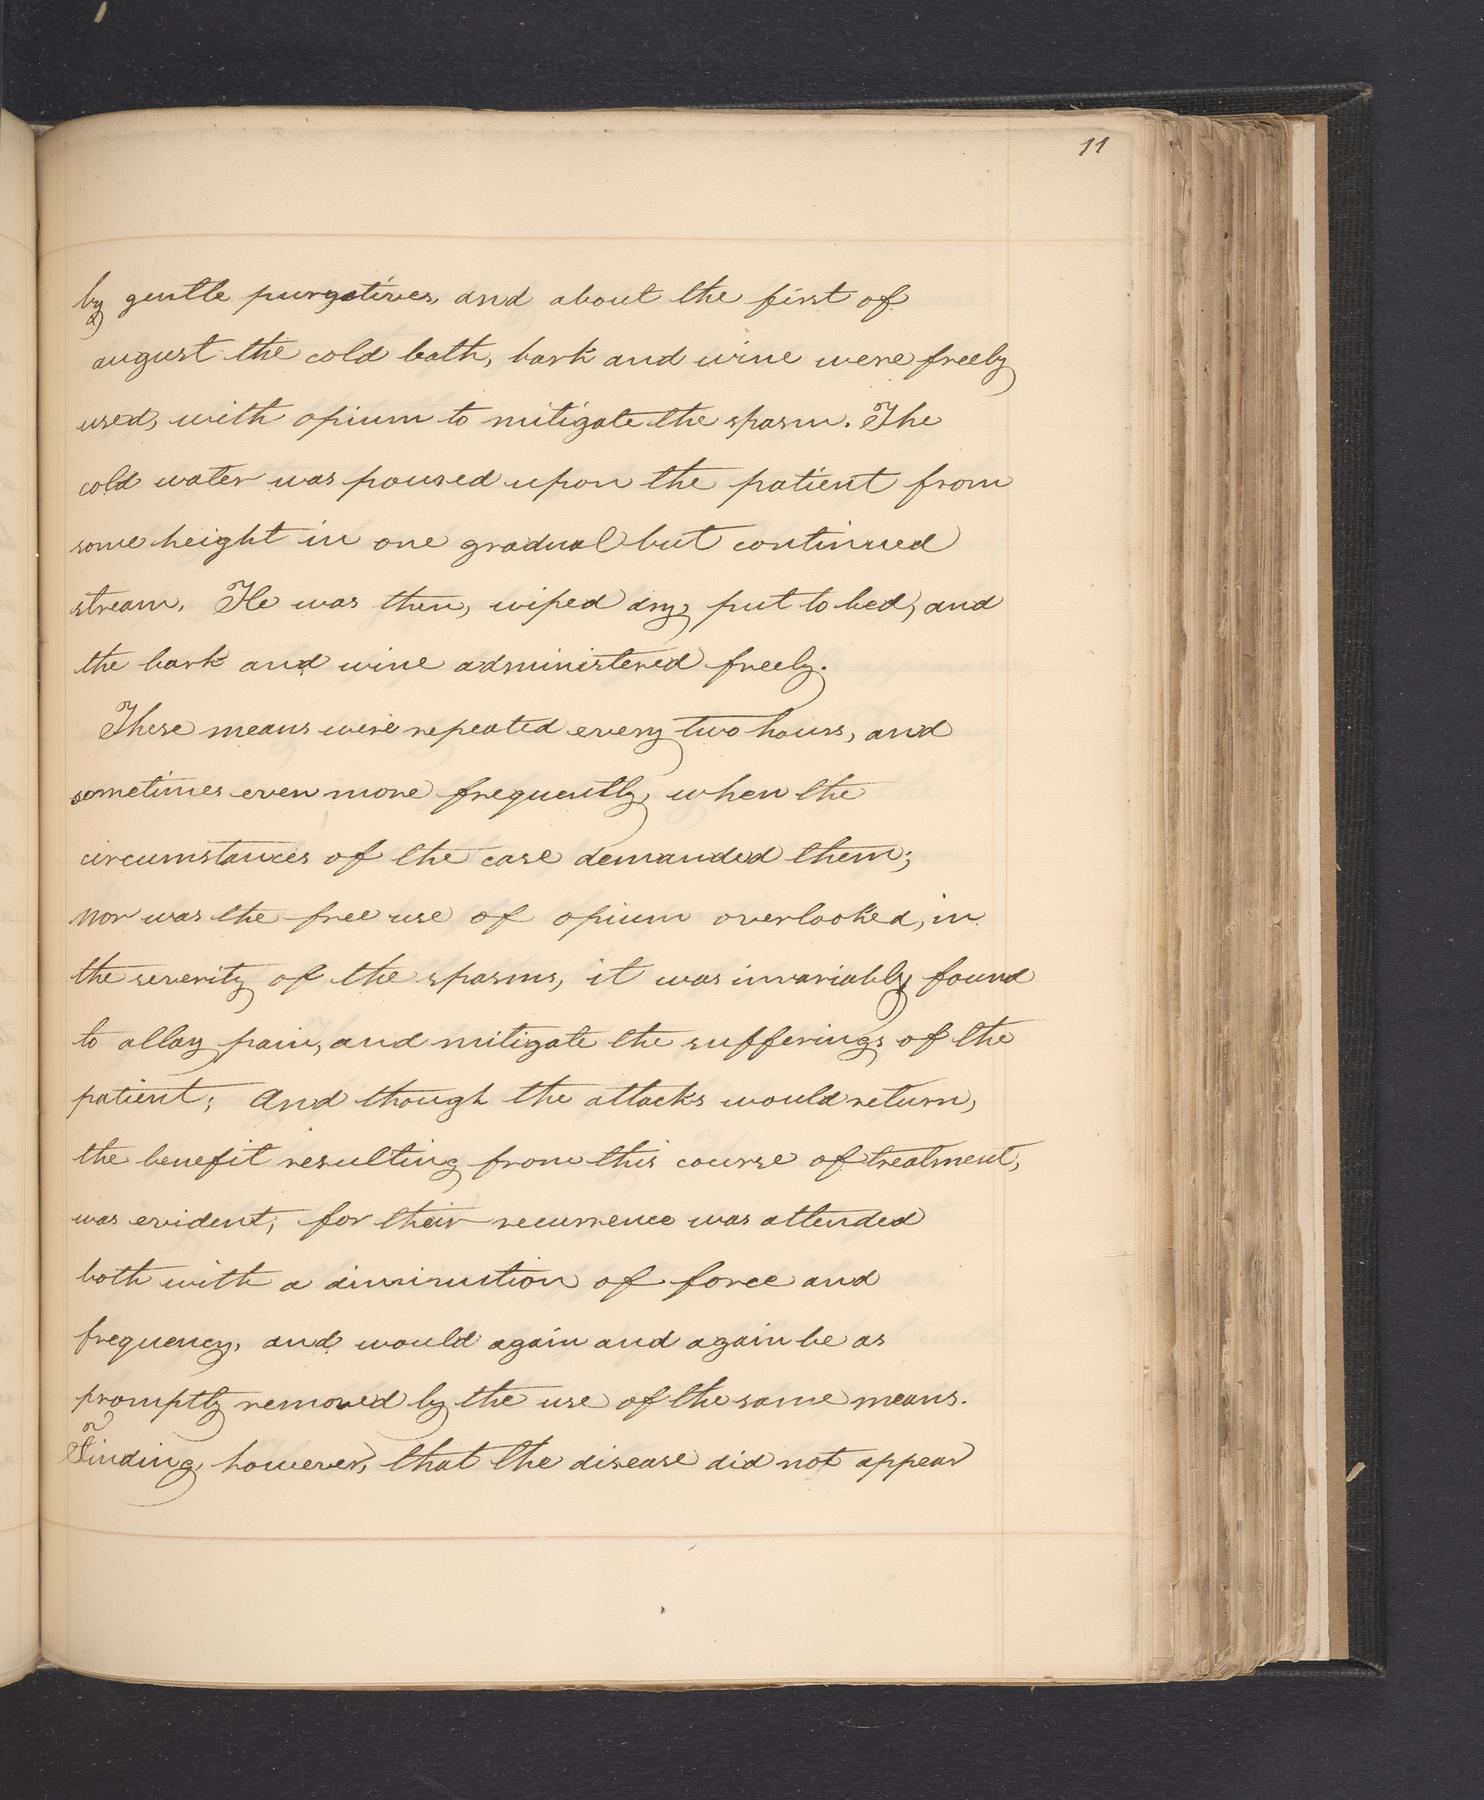 11
by gentle purgatives, and about the first of
august the cold bath, bark and wine were freely
used, with opium to mitigate the spasm. The
cold water was poured upon the patient from
some height in one gradual but continued
stream. He was then, wiped dry, put to bed, and
the bark and wine administered freely.
These means were repeated every two hours, and
sometimes even more frequently, when the
circumstances of the case demanded them;
nor was the free use of opium overlooked, in
the severity of the spasms, it was invariably found
to allay pain, and mitigate the sufferings of the
patient; And though the attacks would return,
the benefit resulting from this course of treatment,
was evident; for their recurrence was attended
both with a diminution of force and
frequency, and would again and again be as
promptly removed by the use of the same means.
Finding, however, that the disease did not appear